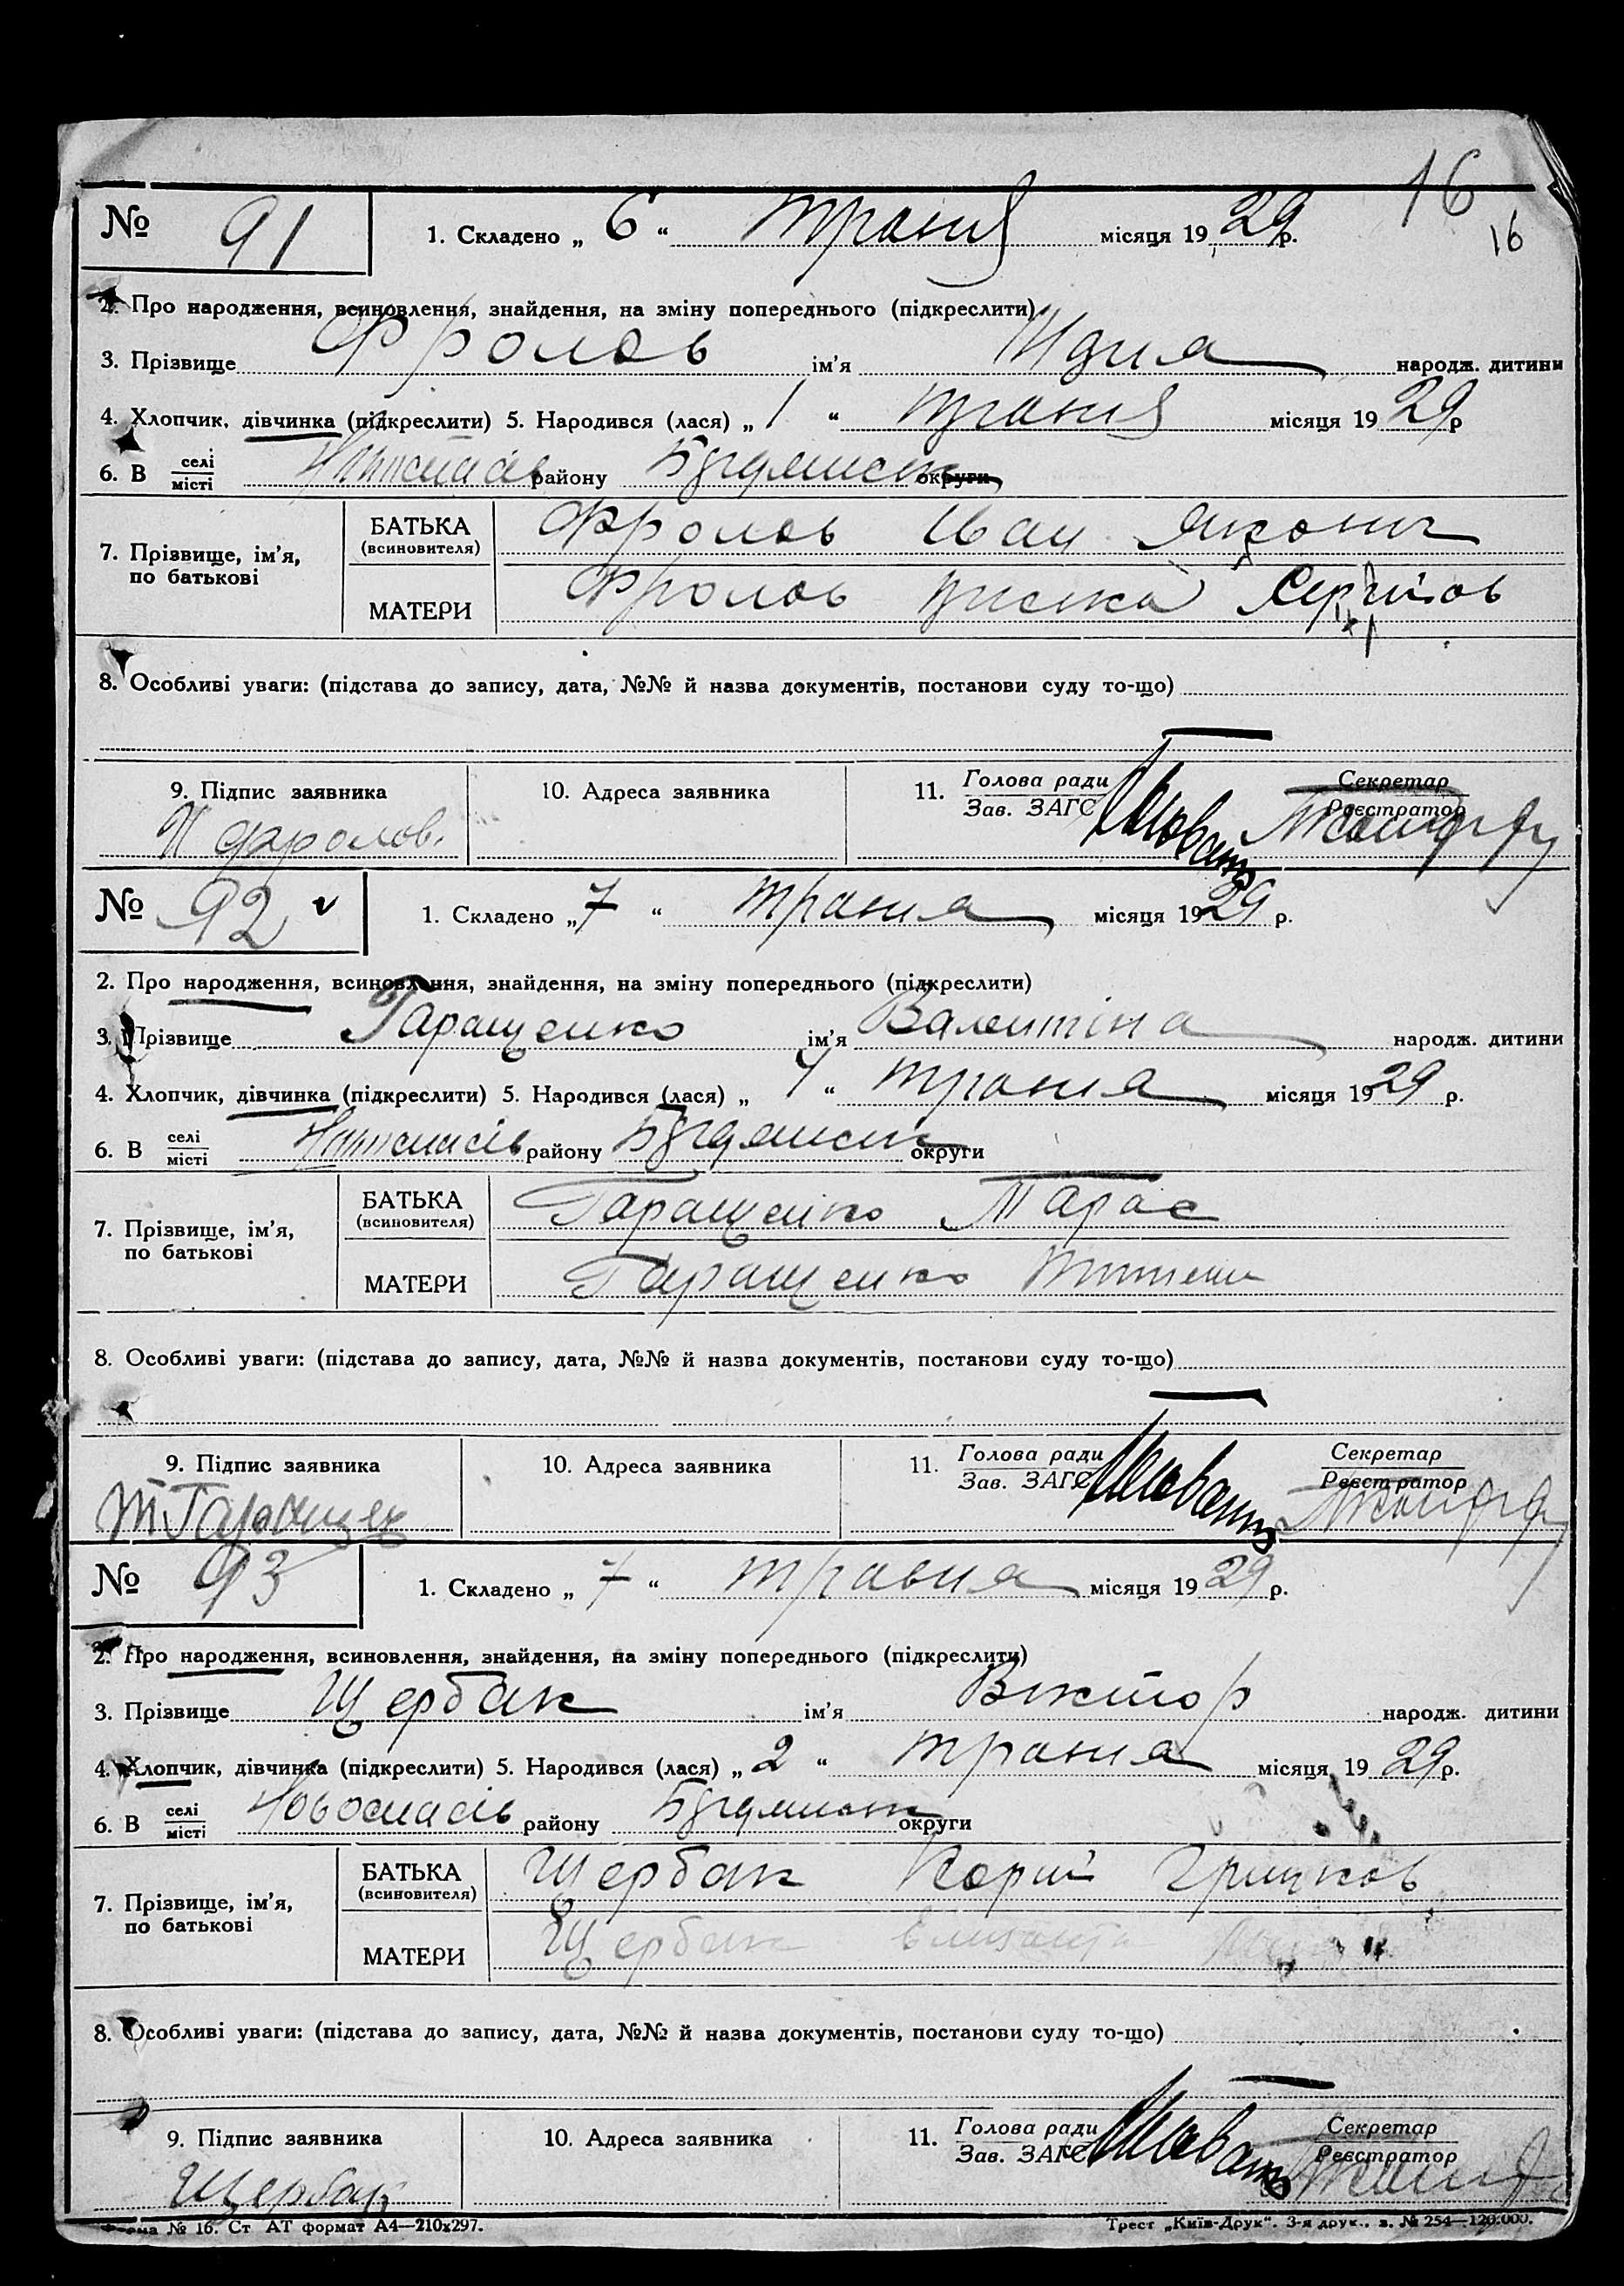 16
16
№ 91 1. Складено „ 6 “ травня місяця 1929 р.
2. Про народження, всиновлення, знайдення, на зміну попереднього (підкреслити)
3. Прізвище Фролов ім'я народж. дитини
4. Хлопчик, дівчинка (підкреслити) 5. Народився (лася) „ 1 “ травня місяця 1929 р
6. В селі/місті району округи
7. Прізвище, ім'я, по батькові
БАТЬКА (всиновителя) Фролов Іван
МАТЕРИ Фролов
8. Особливі уваги: (підстава до запису, дата, №№ й назва документів, постанови суду то-що)
9. Підпис заявника 10. Адреса заявника 11. Голова ради/Зав. ЗАГС Секретар/Реєстратор
Фролов.
№ 92 1. Складено „ 7 “ травня місяця 1929 р.
2. Про народження, всиновлення, знайдення, на зміну попереднього (підкреслити)
3. Прізвище Гаращенко ім'я Валентіна народж. дитини
4. Хлопчик, дівчинка (підкреслити) 5. Народився (лася) „ “ травня місяця 1929 р.
6. В селі/місті району округи
7. Прізвище, ім'я, по батькові
БАТЬКА (всиновителя) Гаращенко Тарас
МАТЕРИ Гаращенко
8. Особливі уваги: (підстава до запису, дата, №№ й назва документів, постанови суду то-що)
9. Підпис заявника 10. Адреса заявника 11. Голова ради/Зав. ЗАГС Секретар/Реєстратор
№ 93 1. Складено „ 7 “ травня місяця 1929 р.
2. Про народження, всиновлення, знайдення, на зміну попереднього (підкреслити)
3. Прізвище Щербак ім'я Віктор народж. дитини
4. Хлопчик, дівчинка (підкреслити) 5. Народився (лася) „ 2 “ травня місяця 1929 р.
6. В селі/місті Новоспасів району округи
7. Прізвище, ім'я, по батькові
БАТЬКА (всиновителя) Щербак
МАТЕРИ Щербак
8. Особливі уваги: (підстава до запису, дата, №№ й назва документів, постанови суду то-що)
9. Підпис заявника 10. Адреса заявника 11. Голова ради/Зав. ЗАГС Секретар/Реєстратор
Щербак
Форма № 16. Ст АТ формат А4—210х297. Трест „Київ-Друк“. 3-я друк., з. № 254—120.000.